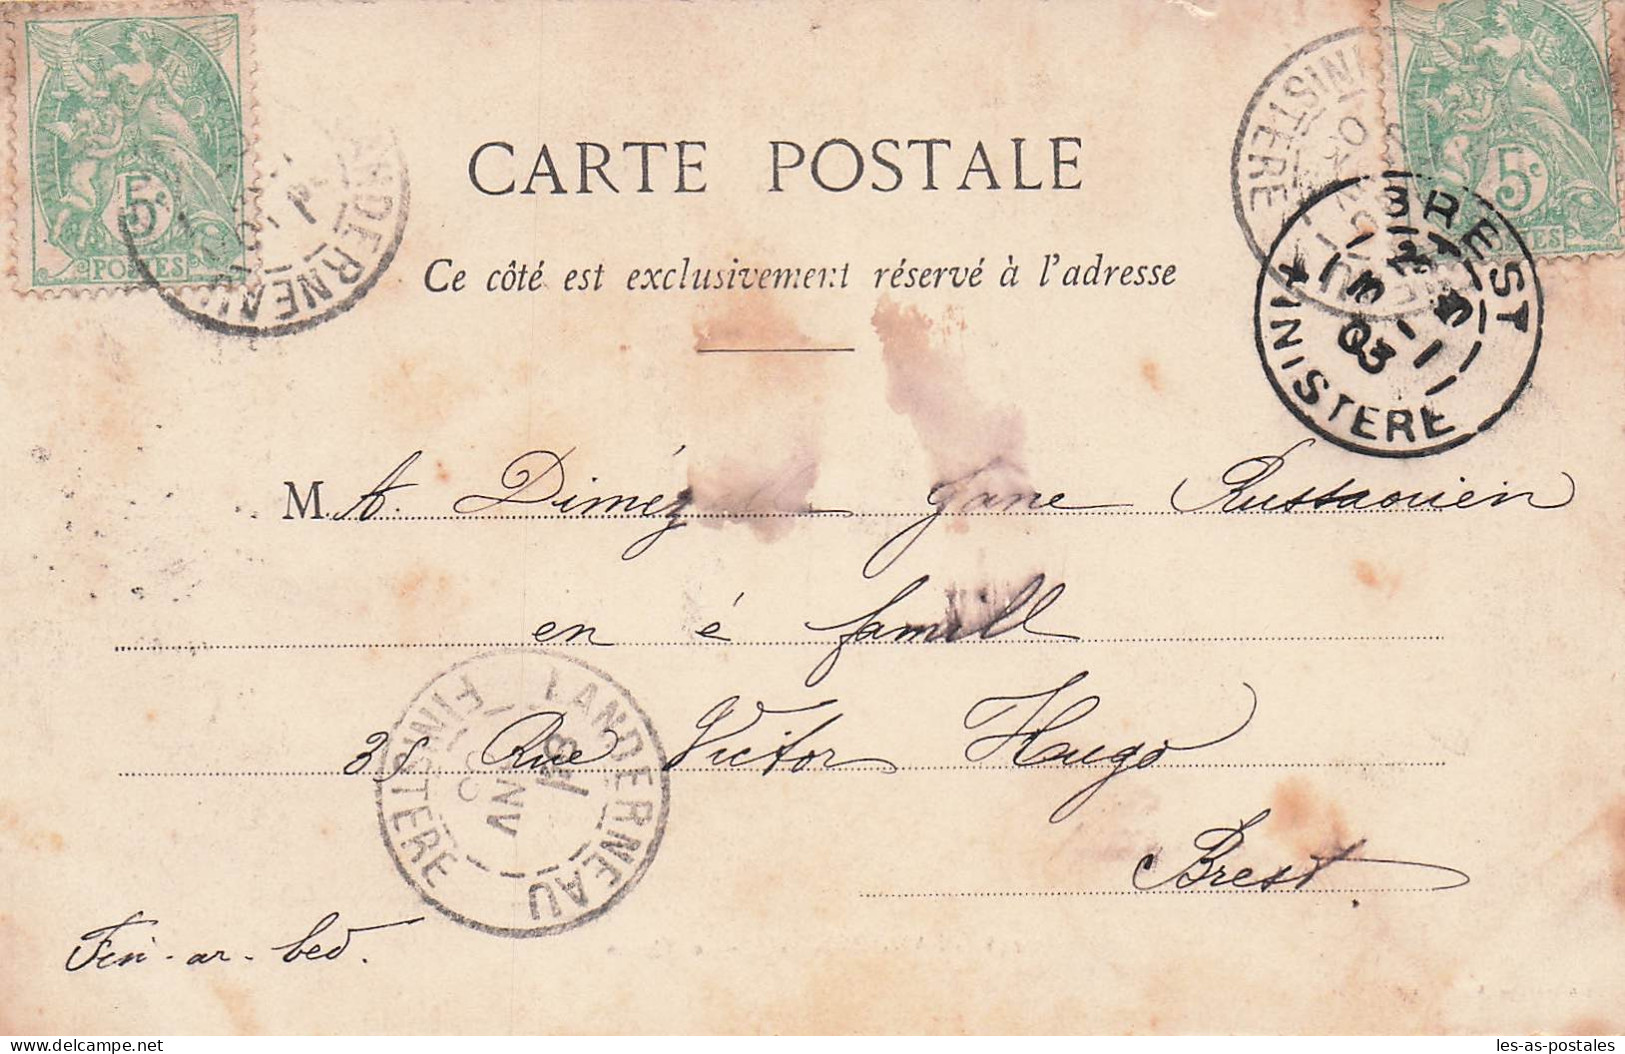 5c
POSTES
LANDERNEAU
5c
POSTES
CARTE POSTALE
FINISTERE
BREST
03
FINISTERE
Ce côté est exclusivement réservé à l'adresse
M. A. Jane
en é famill
LANDERNEAU
FINISTERE
35 Rue Victor Hugo
Brest
Fin-ar-bed.
www.delcampe.net
les-as-postales